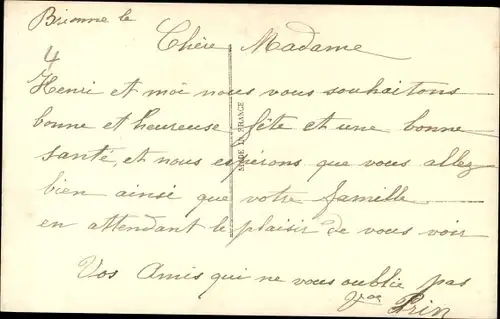 Brionne le
4
Chère Madame
Henri et moi nous vous souhaitons
bonne et heureuse fête et une bonne
santé, et nous espérons que vous allez
bien ainsi que votre famille
en attendant le plaisir de vous voir
Vos Amis qui ne vous oublie pas
Prin
MADE IN FRANCE